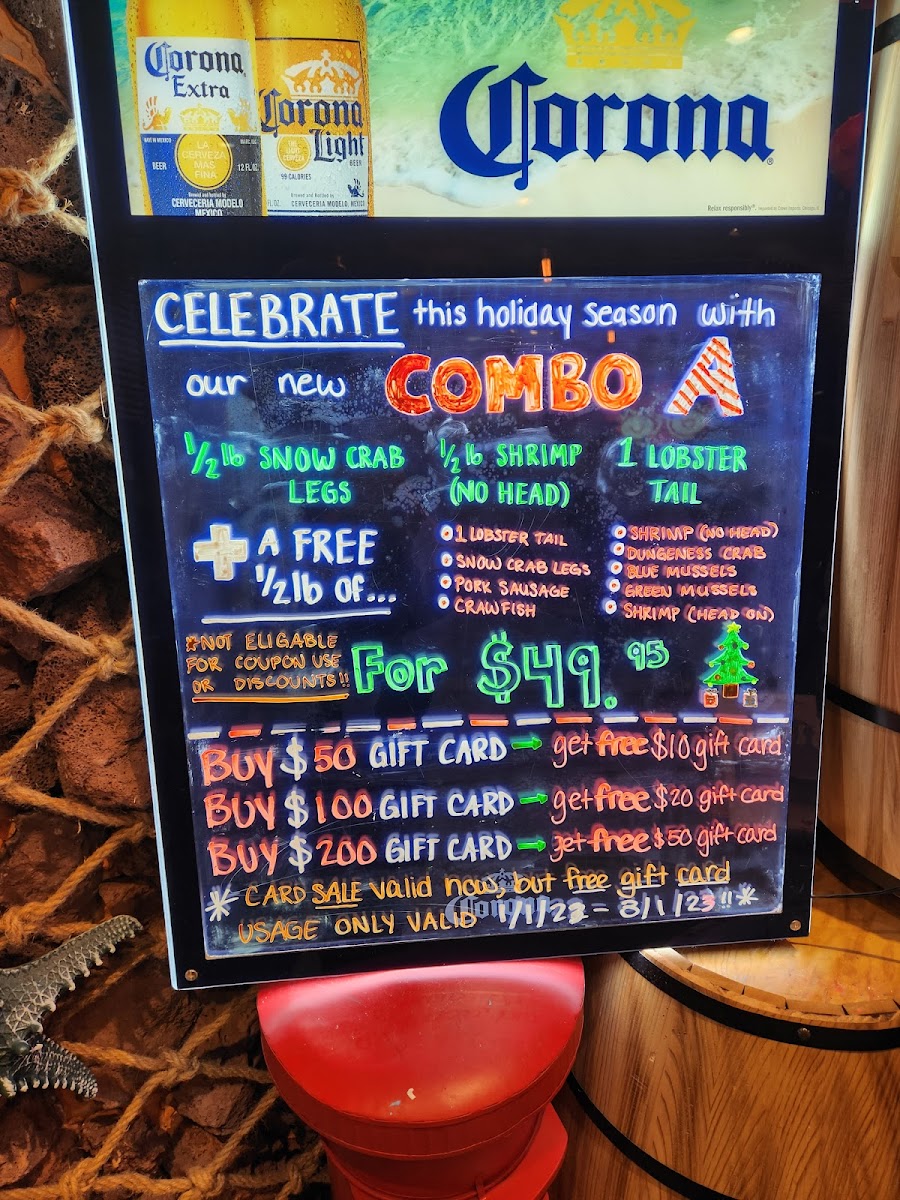 Corona
Extra
LA
CERVEZA
MAS
FINA
MADE IN MEXICO
BEER
12 FL. OZ.
Brewed and bottled by
CERVECERIA MODELO
MEXICO
Corona
Light
BEER
99 CALORIES
Brewed and Bottled by
CERVECERIA MODELO, MEXICO
Corona®
Relax responsibly®.
CELEBRATE this holiday season with
our new COMBO A
1/2 lb SNOW CRAB
LEGS
1/2 lb SHRIMP
(NO HEAD)
1 LOBSTER
TAIL
+ A FREE
1/2 lb OF...
1 LOBSTER TAIL
SNOW CRAB LEGS
PORK SAUSAGE
CRAWFISH
SHRIMP (NO HEAD)
DUNGENESS CRAB
BLUE MUSSELS
GREEN MUSSELS
SHRIMP (HEAD ON)
*NOT ELIGABLE
FOR COUPON USE
OR DISCOUNTS!!
For $49.95
BUY $50 GIFT CARD → get free $10 gift card
BUY $100 GIFT CARD → get free $20 gift card
BUY $200 GIFT CARD → get free $50 gift card
* CARD SALE valid now, but free gift card
USAGE ONLY VALID 1/1/23 - 3/1/23!! *
Corona